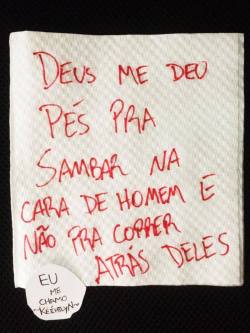 DEUS ME DEU
PÉS PRA
SAMBAR NA
CARA DE HOMEM E
NÃO PRA CORRER
ATRÁS DELES
EU
ME
CHAMO